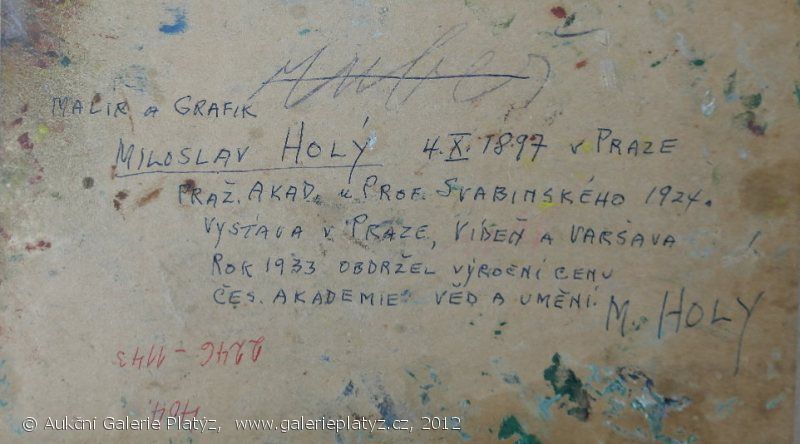 MALIŘ a GRAFIK
MILOSLAV HOLÝ 4.X.1897 v PRAZE
PRAŽ. AKAD. u PROF. SVABINSKÉHO 1924.
VYSTAVA V PRAZE, VIDEŇ A VARŠAVA
ROK 1933 OBDRŽEL VÝROČNÍ CENU
ČES. AKADEMIE VĚD A UMĚNÍ.
M. HOLY
2246 - 1143
© Aukční Galerie Platýz, www.galerieplatyz.cz, 2012